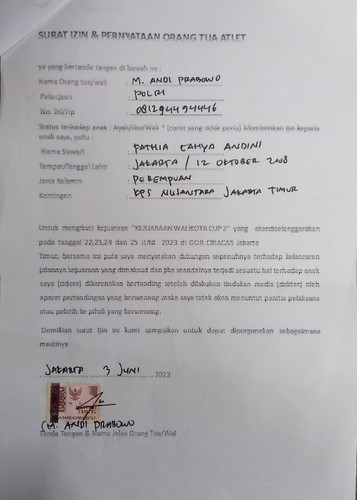 SURAT IZIN & PERNYATAAN ORANG TUA ATLET
ya yang bertanda tangan di bawah ini :
Nama Orang tua/wali : M. ANDI PRABOWO
Pekerjaan : POLRI
No. Tel/Hp : 081294494446
Status terhadap anak : Ayah/Ibu/Wali * (coret yang tidak perlu) Memberikan izin kepada
anak saya, yaitu :
Nama Siswa/i : FATHIA CAHYA ANDINI
Tempat/Tanggal Lahir : JAKARTA / 12 OKTOBER 2008
Jenis Kelamin : PEREMPUAN
Kontingen : KPS NUSANTARA JAKARTA TIMUR
Untuk mengikuti kejuaraan "KEJUARAAN WALIKOTA CUP 2" yang akan diselenggarakan
pada tanggal 22,23,24 dan 25 JUNI 2023 di GOR CIRACAS Jakarta
Timur, bersama ini pula saya menyatakan dukungan sepenuhnya terhadap kelancaran
jalannya kejuaraan yang dimaksud dan jika seandainya terjadi sesuatu hal terhadap anak
saya (cidera) dikarenakan bertanding setelah dilakukan tindakan medis (dokter) oleh
aparat pertandingan yang berwenang maka saya tidak akan menuntut panitia pelaksana
atau pelatih ke pihak yang berwenang.
Demikian surat izin ini kami sampaikan untuk dapat dipergunakan sebagaimana
mestinya.
JAKARTA 3 JUNI 2023
10000
TEMPEL
(M. ANDI PRABOWO
Tanda Tangan & Nama Jelas Orang Tua/Wali